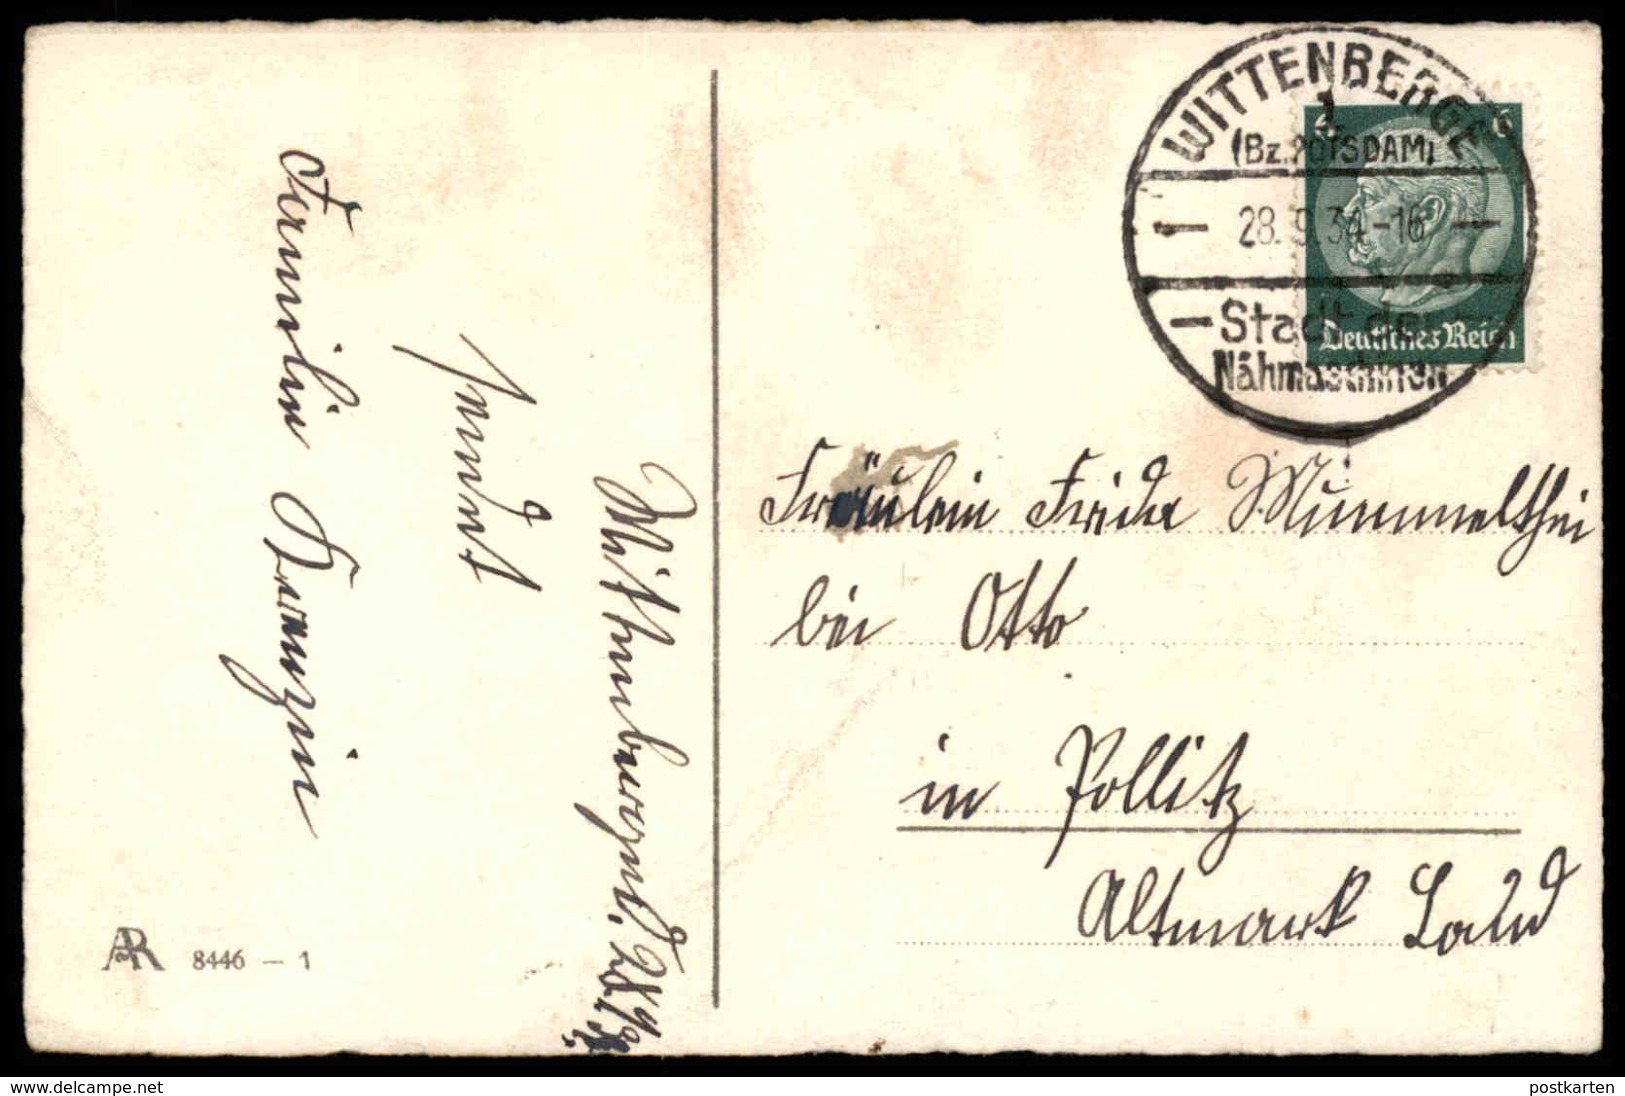 WITTENBERGE
1
(Bz. POTSDAM)
28.9.34-16
Stadt der
Nähmaschinen
6 6
Deutsches Reich
Wittenberge, d. 28/9.
sendet
Familie
Fräulein Frieda Mummelthei
bei Otto
in Pollitz
Altmark Land
AR 8446 – 1
www.delcampe.net
postkarten